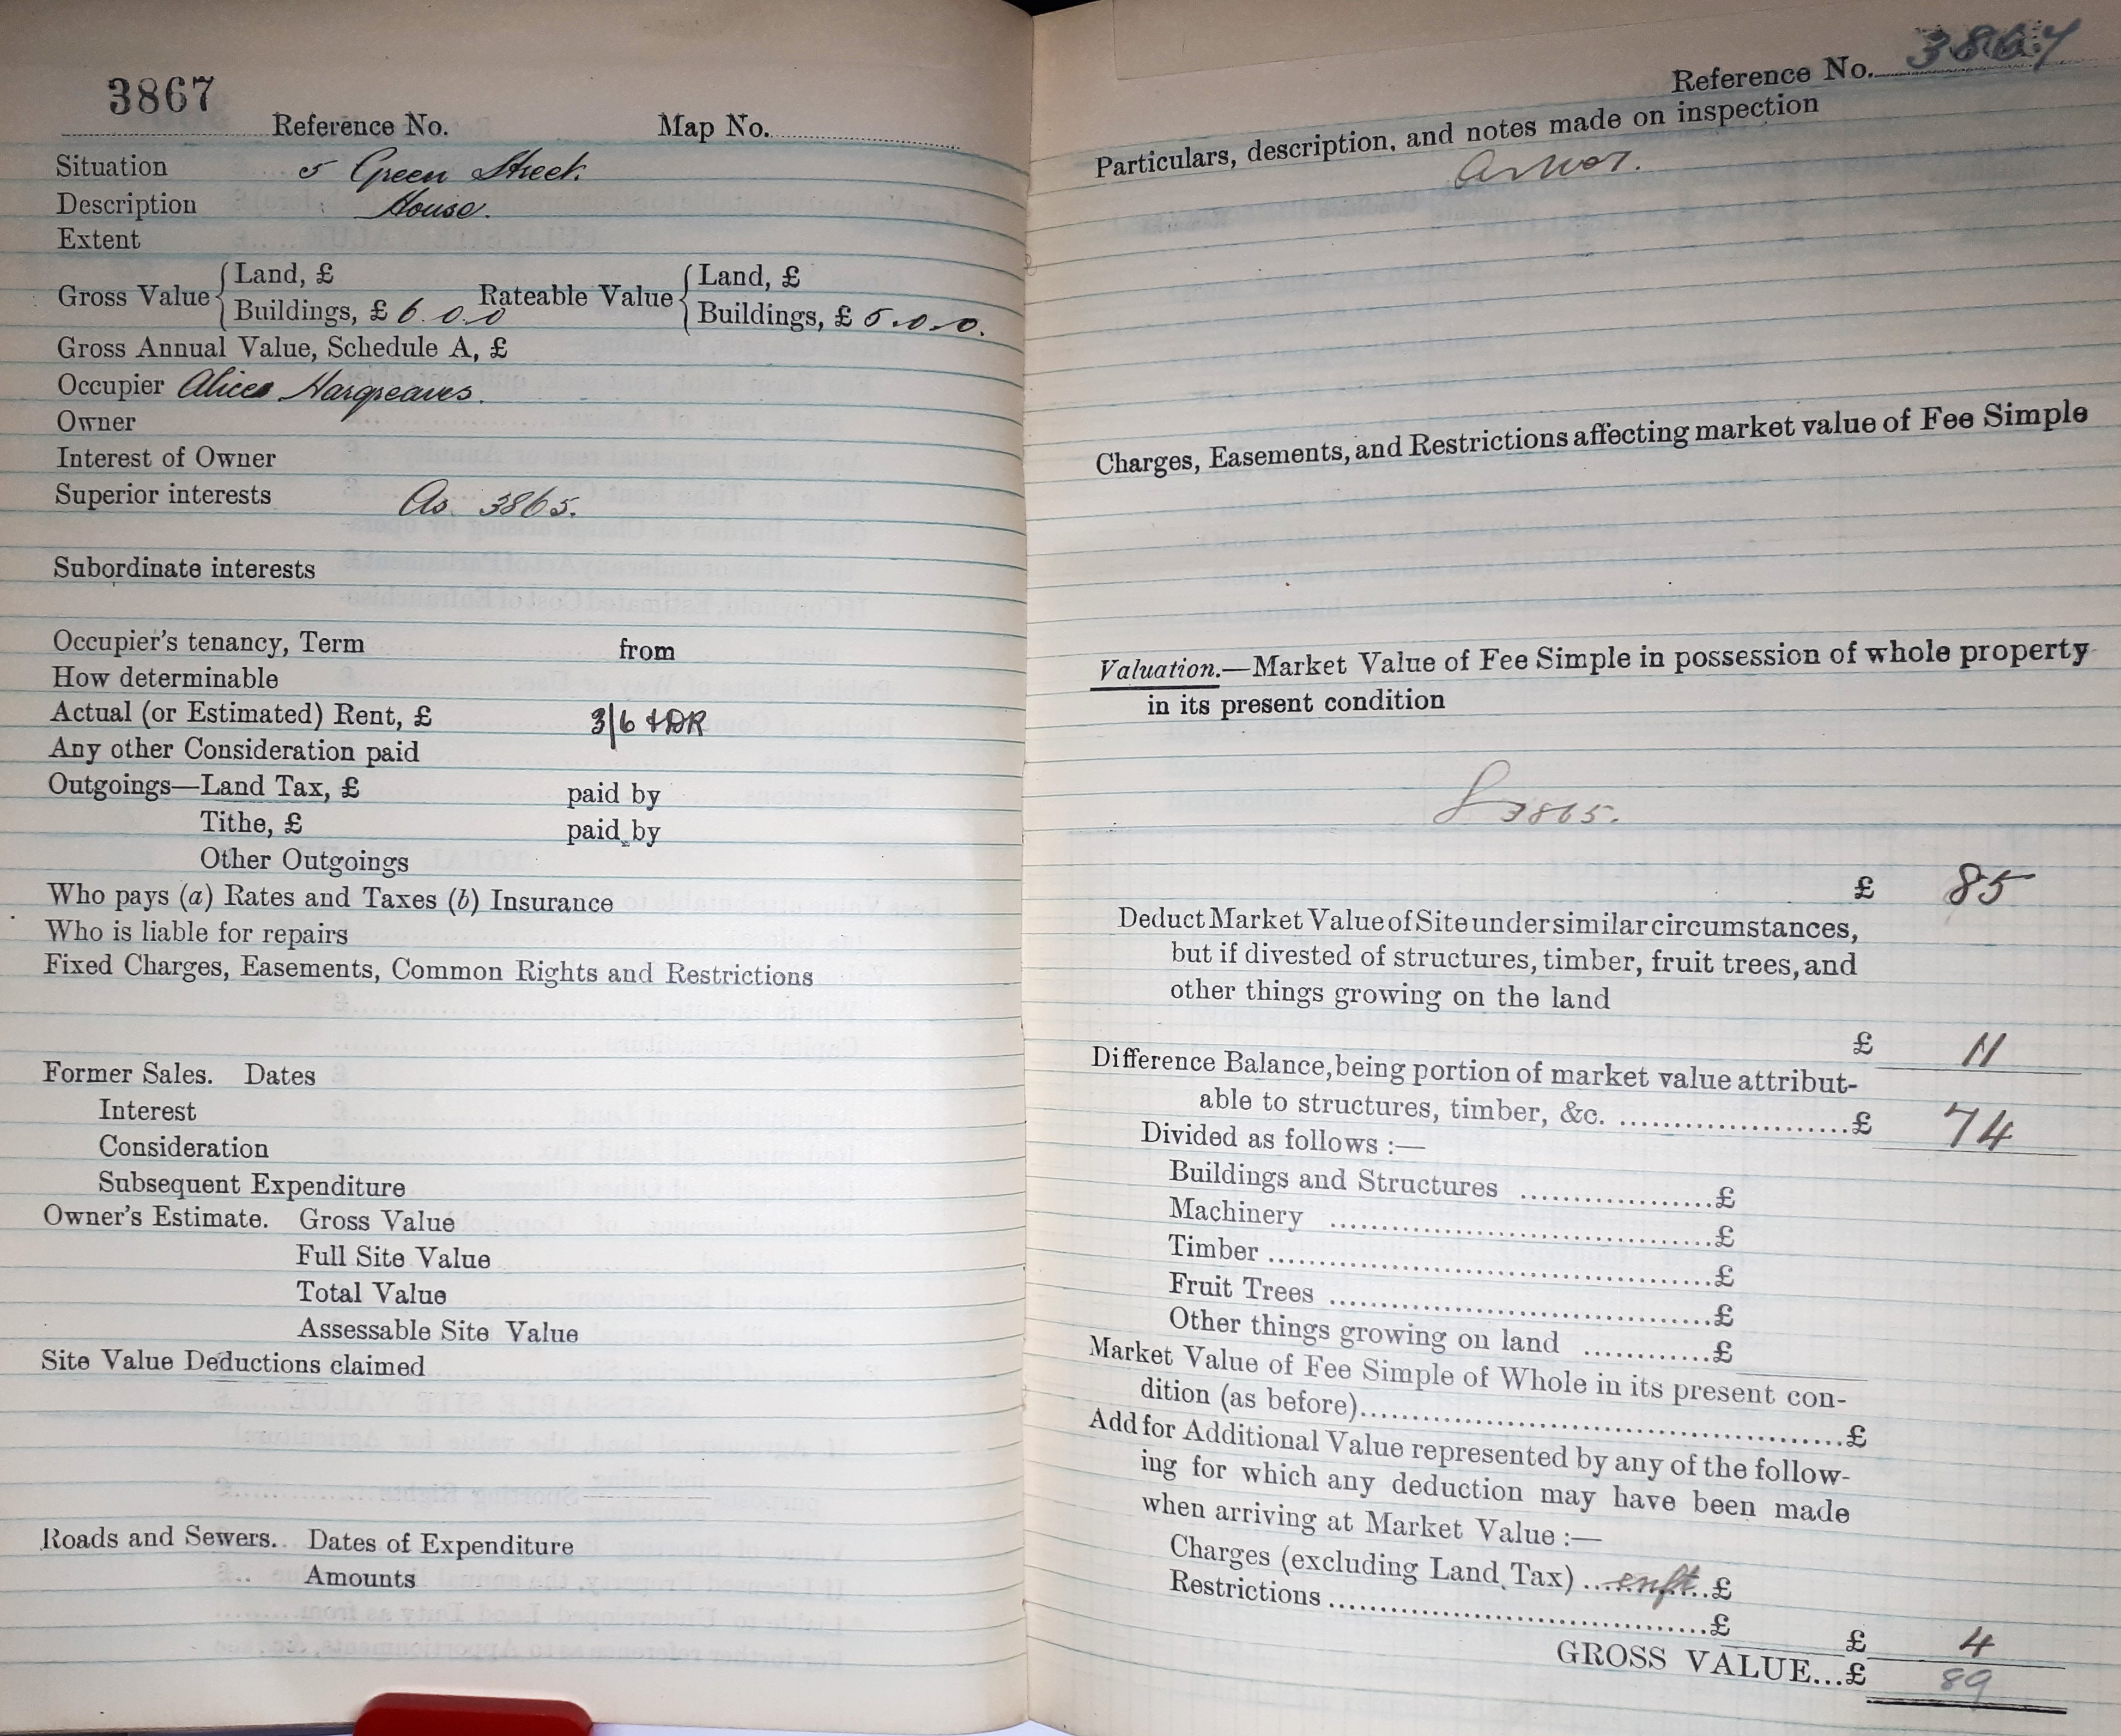 3867
Reference No. Map No.
Situation 5 Green Street.
Description House.
Extent
Gross Value { Land, £ Rateable Value { Land, £
Buildings, £ 6.0.0 Buildings, £ 5.0.0.
Gross Annual Value, Schedule A, £
Occupier Alice Hargreaves.
Owner
Interest of Owner
Superior interests As. 3865.
Subordinate interests
Occupier's tenancy, Term from
How determinable
Actual (or Estimated) Rent, £ 3/6 + DR
Any other Consideration paid
Outgoings—Land Tax, £ paid by
Tithe, £ paid by
Other Outgoings
Who pays (a) Rates and Taxes (b) Insurance
Who is liable for repairs
Fixed Charges, Easements, Common Rights and Restrictions
Former Sales. Dates
Interest
Consideration
Subsequent Expenditure
Owner's Estimate. Gross Value
Full Site Value
Total Value
Assessable Site Value
Site Value Deductions claimed
Roads and Sewers. Dates of Expenditure
Amounts
Reference No. 3867
Particulars, description, and notes made on inspection
Charges, Easements, and Restrictions affecting market value of Fee Simple
Valuation.—Market Value of Fee Simple in possession of whole property
in its present condition
3865.
£ 85
Deduct Market Value of Site under similar circumstances,
but if divested of structures, timber, fruit trees, and
other things growing on the land
£ 11
Difference Balance, being portion of market value attribut-
able to structures, timber, &c. £ 74
Divided as follows :—
Buildings and Structures £
Machinery £
Timber £
Fruit Trees £
Other things growing on land £
Market Value of Fee Simple of Whole in its present con-
dition (as before) £
Add for Additional Value represented by any of the follow-
ing for which any deduction may have been made
when arriving at Market Value :—
Charges (excluding Land Tax) enft. £
Restrictions £
£ 4
GROSS VALUE...£ 89